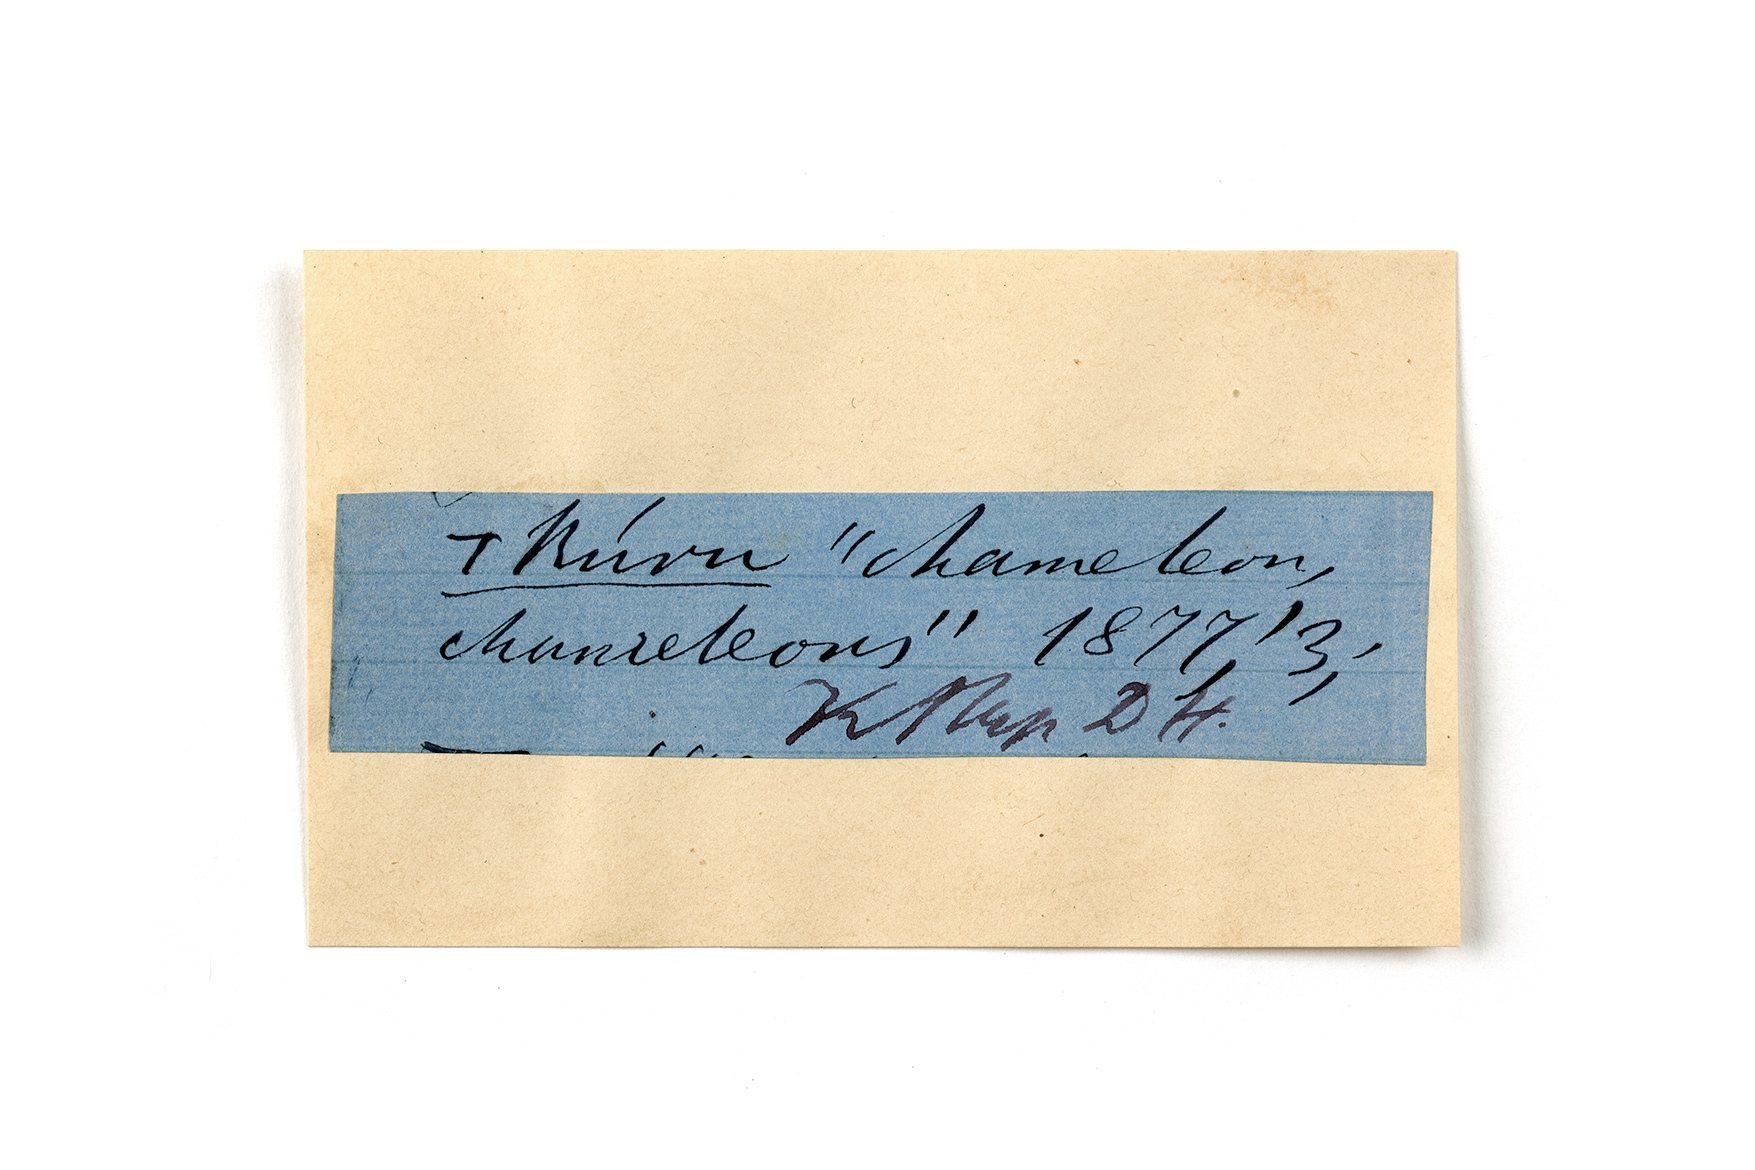 + Rúvu "chameleon,
chameleons" 1877, '3,
K. Rep D H.